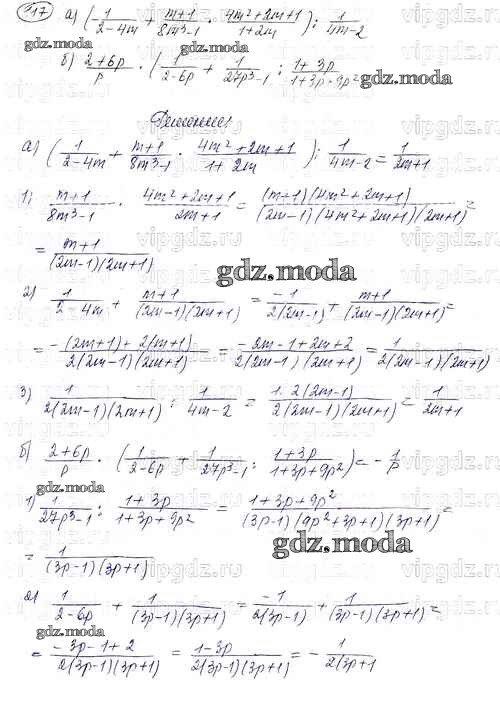 317 а) (1/(2-4m) + (m+1)/(8m³-1) · (4m²+2m+1)/(1+2m)) : 1/(4m-2)
gdz.moda
б) (2+6p)/p · (1/(2-6p) + 1/(27p³-1) : (1+3p)/(1+3p+9p²)
gdz.moda
Решение
а) (1/(2-4m) + (m+1)/(8m³-1) · (4m²+2m+1)/(1+2m)) : 1/(4m-2) = 1/(2m+1)
gdz.moda
1) (m+1)/(8m³-1) · (4m²+2m+1)/(2m+1) = ((m+1)(4m²+2m+1))/((2m-1)(4m²+2m+1)(2m+1)) =
= (m+1)/((2m-1)(2m+1))
gdz.moda
2) 1/(2-4m) + (m+1)/((2m-1)(2m+1)) = -1/(2(2m-1)) + (m+1)/((2m-1)(2m+1)) =
= (-(2m+1)+2(m+1))/(2(2m-1)(2m+1)) = (-2m-1+2m+2)/(2(2m-1)(2m+1)) = 1/(2(2m-1)(2m+1))
gdz.moda
3) 1/(2(2m-1)(2m+1)) : 1/(4m-2) = (1·2(2m-1))/(2(2m-1)(2m+1)) = 1/(2m+1)
б) (2+6p)/p · (1/(2-6p) + 1/(27p³-1) : (1+3p)/(1+3p+9p²)) = -1/p
gdz.moda
1) 1/(27p³-1) : (1+3p)/(1+3p+9p²) = (1+3p+9p²)/((3p-1)(9p²+3p+1)(3p+1)) =
gdz.moda
= 1/((3p-1)(3p+1))
2) 1/(2-6p) + 1/((3p-1)(3p+1)) = -1/(2(3p-1)) + 1/((3p-1)(3p+1)) =
gdz.moda
= (-3p-1+2)/(2(3p-1)(3p+1)) = (1-3p)/(2(3p-1)(3p+1)) = -1/(2(3p+1